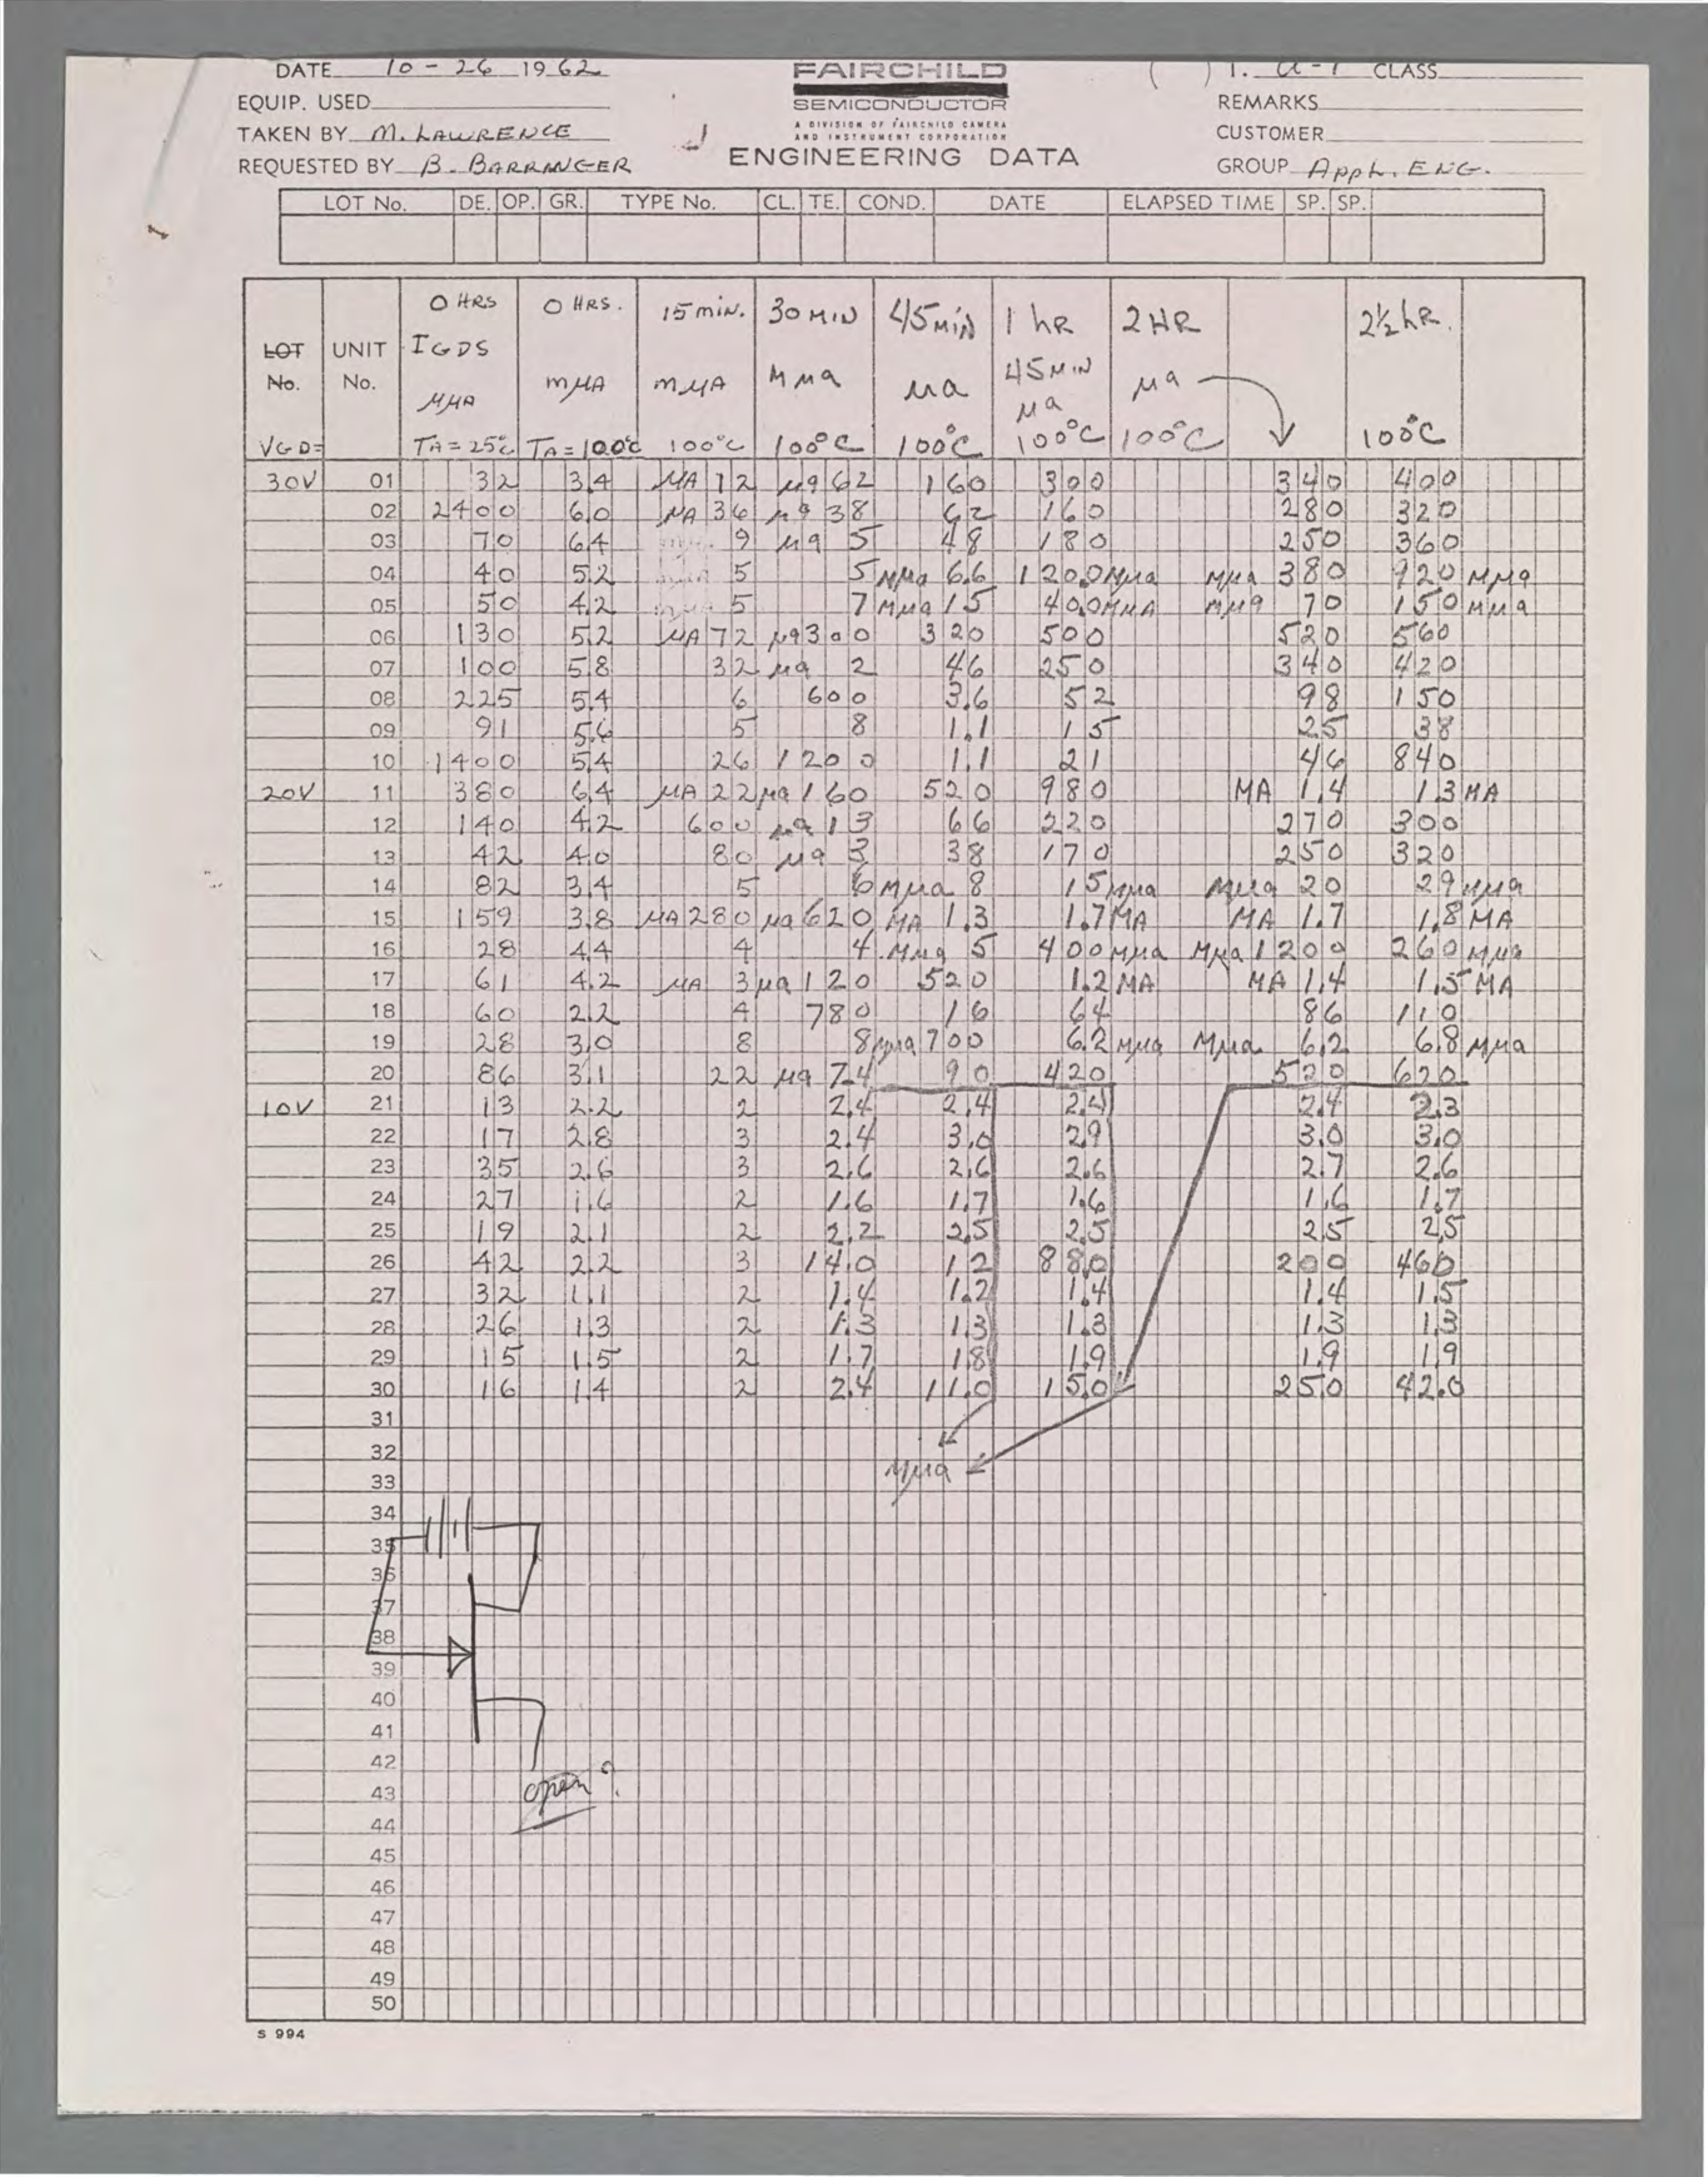 DATE 10-26 1962
FAIRCHILD
CLASS
EQUIP. USED
SEMICONDUCTOR
REMARKS
A DIVISION OF FAIRCHILD CAMERA
TAKEN BY M. LAWRENCE
AND INSTRUMENT CORPORATION
CUSTOMER
REQUESTED BY B. BARRANGER
ENGINEERING DATA
GROUP Appl. ENG.
LOT No. DE. OP. GR. TYPE No. CL. TE. COND. DATE ELAPSED TIME SP. SP.
0 HRS 0 HRS. 15 min. 30 MIN 45 MIN 1 hR 2 HR 2½ hR.
LOT UNIT IGDS 45 MIN
No. No. MμA mμA mμA Mμa μa μa μa
VGD= TA=25°C TA=100°C 100°C 100°C 100°C 100°C 100°C 100°C
30V 01 32 3.4 μA 12 μa 62 160 300 340 400
02 2400 6.0 μA 36 μa 38 62 160 280 320
03 70 6.4 9 μa 5 48 180 250 360
04 40 5.2 5 5 Mμa 6.6 120.0 Mμa Mμa 380 920 MμA
05 50 4.2 5 7 Mμa 15 40.0 MμA Mμa 70 150 Mμa
06 130 5.2 μA 72 μa 300 320 500 520 560
07 100 5.8 32 μa 2 46 250 340 420
08 225 5.4 6 600 3.6 52 98 150
09 91 5.6 5 8 1.1 15 25 38
10 1400 5.4 26 1200 1.1 21 46 840
20V 11 380 6.4 μA 22 μa 160 520 980 MA 1.4 1.3 MA
12 140 4.2 600 μa 13 66 220 270 300
13 42 4.0 80 μa 3 38 170 250 320
14 82 3.4 5 6 Mμa 8 15 Mμa Mμa 20 29 Mμa
15 159 3.8 μA 280 μa 620 MA 1.3 1.7 MA MA 1.7 1.8 MA
16 28 4.4 4 4 Mμa 5 400 Mμa Mμa 1200 260 Mμa
17 61 4.2 μA 3 μa 120 520 1.2 MA MA 1.4 1.5 MA
18 60 2.2 4 780 16 64 86 110
19 28 3.0 8 8 Mμa 700 6.2 Mμa Mμa 6.2 6.8 Mμa
20 86 3.1 22 μa 7.4 90 420 520 620
10V 21 13 2.2 2 2.4 2.4 2.4 2.4 2.3
22 17 2.8 3 2.4 3.0 2.9 3.0 3.0
23 35 2.6 3 2.6 2.6 2.6 2.7 2.6
24 27 1.6 2 1.6 1.7 1.6 1.6 1.7
25 19 2.1 2 2.2 2.5 2.5 2.5 2.5
26 42 2.2 3 14.0 12 88.0 200 460
27 32 1.1 2 1.4 1.2 1.4 1.4 1.5
28 26 1.3 2 1.3 1.3 1.3 1.3 1.3
29 15 1.5 2 1.7 1.8 1.9 1.9 1.9
30 16 1.4 2 2.4 11.0 15.0 25.0 42.0
31
32
Mμa
33
34
35
36
37
38
39
40
41
42
43 open?
44
45
46
47
48
49
50
S 994